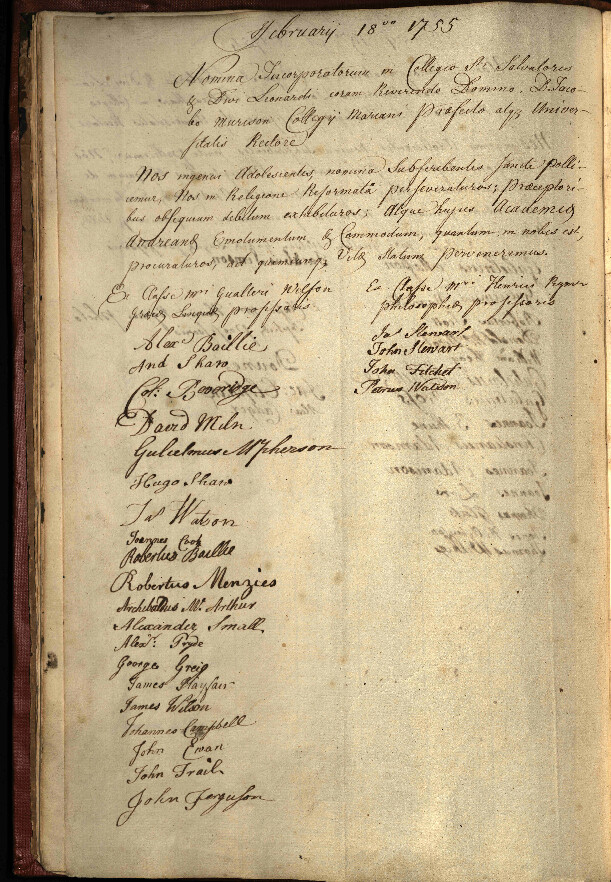 Februarij 18vo 1755
Nomina Incorporatorum in Collegio Sti Salvatoris
& Divi Leonardi coram Reverendo Domino D. Jaco-
bo Murison Collegij Mariani Præfecto atq; Univer-
sitatis Rectore
Nos ingenui Adolescentes, nomina Subscribentes Sancte polli-
cemur, Nos in Religione Reformatâ perseveraturos; Præceptori-
bus obsequium debitum exhibituros; Atque hujus Academiæ
Andreanæ Emolumentum & Commodum, quantum in nobis est,
procuraturos, ad quemcunq; Vitæ Statum pervenerimus.
Ex Classe Mri Gualteri Wilson
Græcæ Linguæ professoris
Alexr Baillie
And Shaw
Col: Boveridge
David Miln
Gulielmus Mcpherson
Hugo Shaw
Jas Watson
Joannes Cook
Robertus Baillie
Robertus Menzies
Archibaldus Mc Arthur
Alexander Small
Alexr. Pryde
George Greig
James Playfair
James Wilson
Johannes Campbell
John Ewan
John Trail
John Ferguson
Ex Classe Mri Henrici Rymer
philosophiæ professoris
Jas Stewart
John Stewart
John Fitchet
Petrus Watson